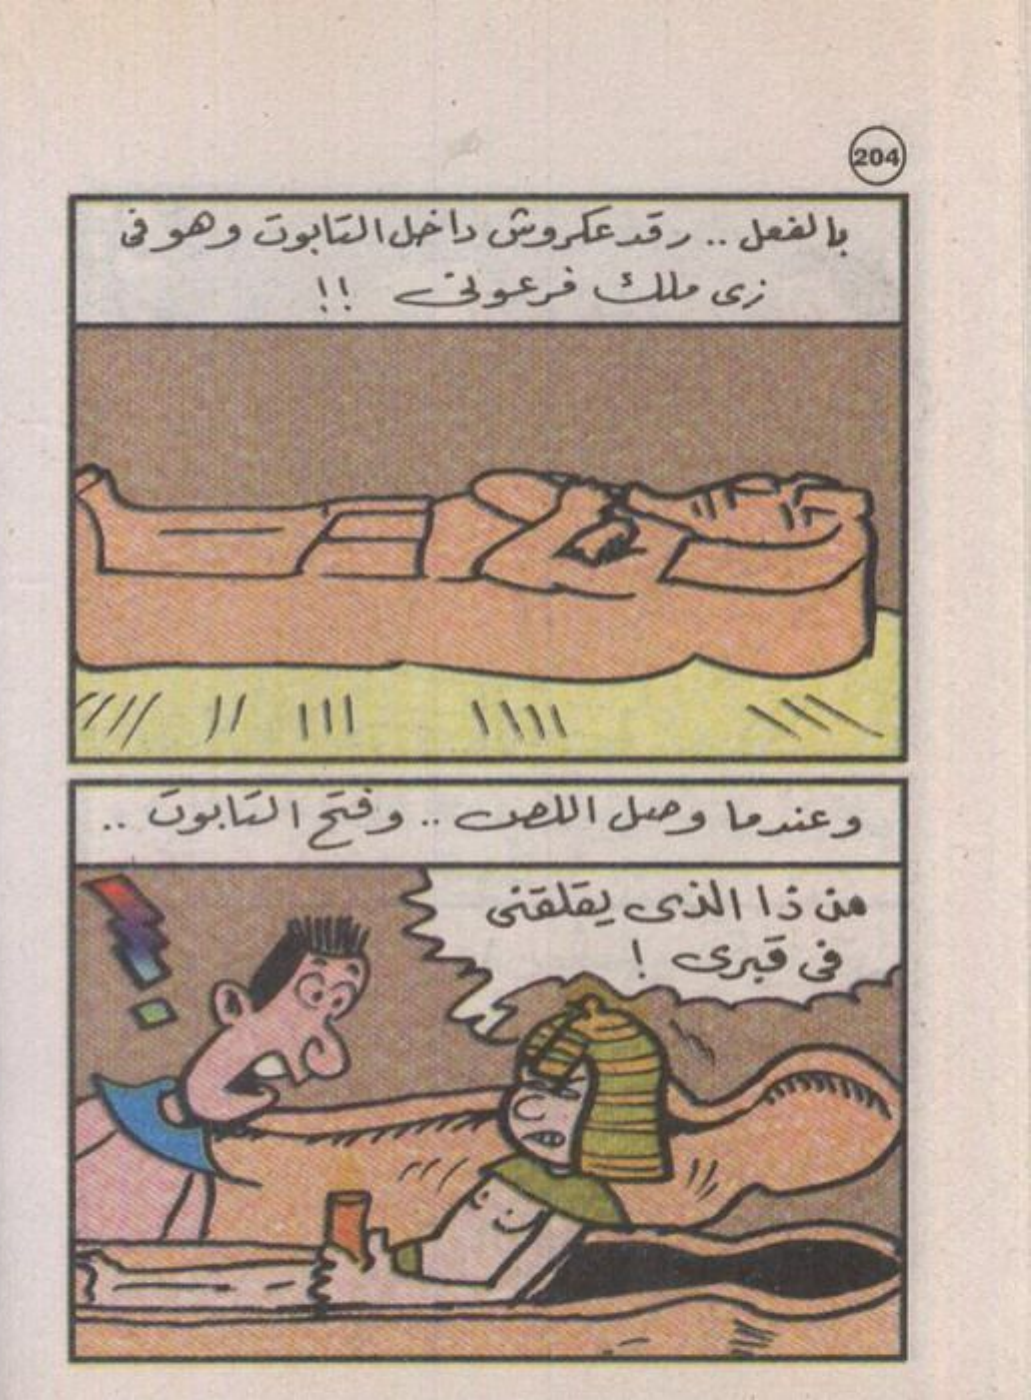 204
بالفعل .. رقد عكروش داخل التابوت وهو فى
زى ملك فرعونى !!
وعندما وصل اللص .. وفتح التابوت ..
من ذا الذى يقلقنى
فى قبرى !